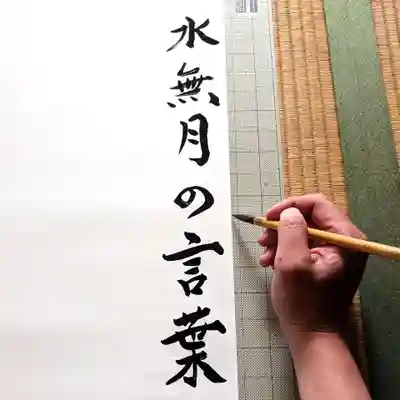 水無月の言葉